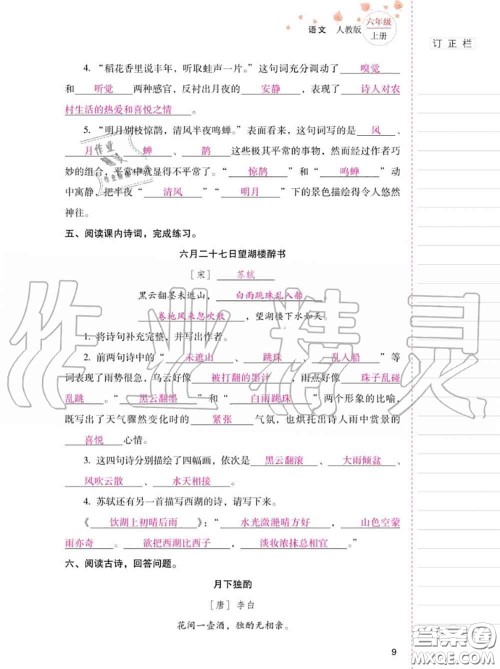 语文 人教版 六年级 上册
订正栏
4. “稻花香里说丰年，听取蛙声一片。”这句词充分调动了 嗅觉
和 听觉 两种感官，反衬出月夜的 安静 ，表现了 诗人对农
村生活的热爱和喜悦之情 。
5. “明月别枝惊鹊，清风半夜鸣蝉。”表面看来，这句词写的是 风 、
月 、 蝉 、 鹊 这些极其平常的事物，然而经过作者巧
妙的组合，平常中就显得不平常了。“ 惊鹊 ”和“ 鸣蝉 ”动
中寓静，把半夜“ 清风 ”“ 明月 ”下的景色描绘得令人悠然
神往。
五、阅读课内诗词，完成练习。
六月二十七日望湖楼醉书
［宋］ 苏轼
黑云翻墨未遮山， 白雨跳珠乱入船 。
卷地风来忽吹散 ，望湖楼下水如天。
1. 将诗句补充完整，并写出作者。
2. 前两句诗中的“ 未遮山 ”、“ 跳珠 ”、“ 乱入船 ”等
词表现了雨势很急，乌云好像 被打翻的墨汁 ，雨点好像 珠子乱碰
乱跳 。“ 黑云翻墨 ”和“ 白雨跳珠 ”两个形象的比喻，
既写出了天气骤然变化时的 紧张 气氛，也烘托出诗人雨中赏景
的 喜悦 心情。
3. 这四句诗分别描绘了四幅画，依次是 黑云翻滚 、 大雨倾盆 、
风吹云散 、 水天相接 。
4. 苏轼还有另一首描写西湖的诗，请写下来。
《 饮湖上初晴后雨 》：“ 水光潋滟晴方好 ， 山色空蒙
雨亦奇 。 欲把西湖比西子 ， 淡妆浓抹总相宜 。”
六、阅读古诗，回答问题。
月下独酌
［唐］李白
花间一壶酒，独酌无相亲。
9
作业精灵
答案圈
MXQE.COM